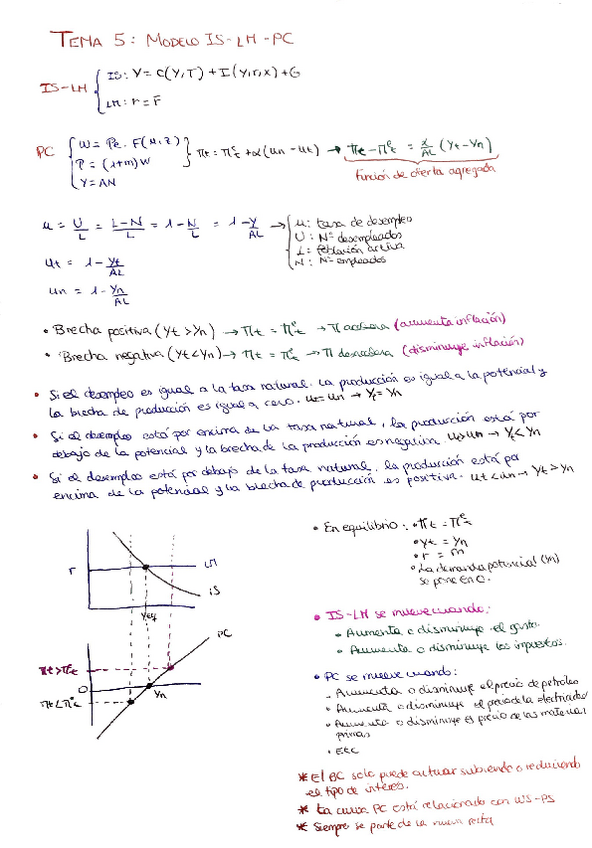 TEMA 5: MODELO IS-LM-PC
IS-LM { IS: Y = C(Y,T) + I(Y,r,x) + G
LM: r = r̄
PC { W = Pe · F(u,z)
P = (1+m)W
Y = AN
} πt = πᵉt + α(un - ut) → πt - πᵉt = α/AL (Yt - Yn)
Función de oferta agregada
u = U/L = L-N/L = 1 - N/L = 1 - Y/AL → { u: tasa de desempleo
U: Nº desempleados
L: Población activa
N: Nº empleados
ut = 1 - Yt/AL
un = 1 - Yn/AL
• Brecha positiva (Yt > Yn) → πt = πᵉt → π acelera (aumenta inflación)
• Brecha negativa (Yt < Yn) → πt = πᵉt → π desacelera (disminuye inflación)
• Si el desempleo es igual a la tasa natural. La producción es igual a la potencial y
la brecha de producción es igual a cero. ut = un → Yt = Yn
• Si el desempleo está por encima de la tasa natural, la producción está por
debajo de la potencial y la brecha de la producción es negativa. ut > un → Yt < Yn
• Si el desempleo está por debajo de la tasa natural, la producción está por
encima de la potencial y la brecha de producción es positiva. ut < un → Yt > Yn
r
LM
IS
Yeq
PC
πt > πᵉt
0
Yn
πt < πᵉt
• En equilibrio: • πt = πᵉt
• Yt = Yn
• r = rn
• La demanda potencial (Yn)
se pone en 0.
• IS-LM se mueve cuando:
• Aumenta o disminuye el gasto.
• Aumenta o disminuye los impuestos.
• PC se mueve cuando:
- Aumenta o disminuye el precio de petróleo
- Aumenta o disminuye el precio de la electricidad
• Aumenta o disminuye el precio de las materias
primas
• Etc
* El BC solo puede actuar subiendo o reduciendo
el tipo de interés.
* La curva PC está relacionado con WS-PS
* Siempre se parte de la nueva recta